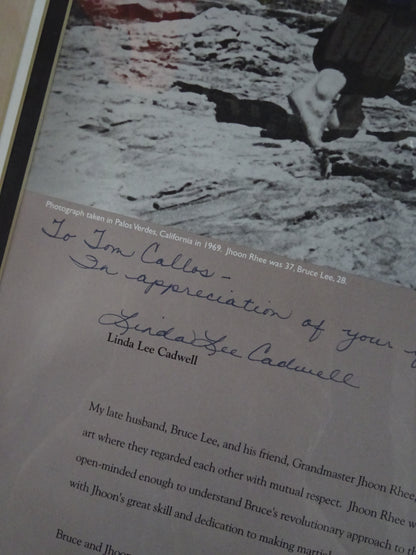 Photograph taken in Palos Verdes, California in 1969. Jhoon Rhee was 37, Bruce Lee, 28.
To Tom Callos -
In appreciation of your
Linda Lee Cadwell
Linda Lee Cadwell
My late husband, Bruce Lee, and his friend, Grandmaster Jhoon Rhee,
art where they regarded each other with mutual respect. Jhoon Rhee w
open-minded enough to understand Bruce's revolutionary approach to th
with Jhoon's great skill and dedication to making martial
Bruce and Jhoon